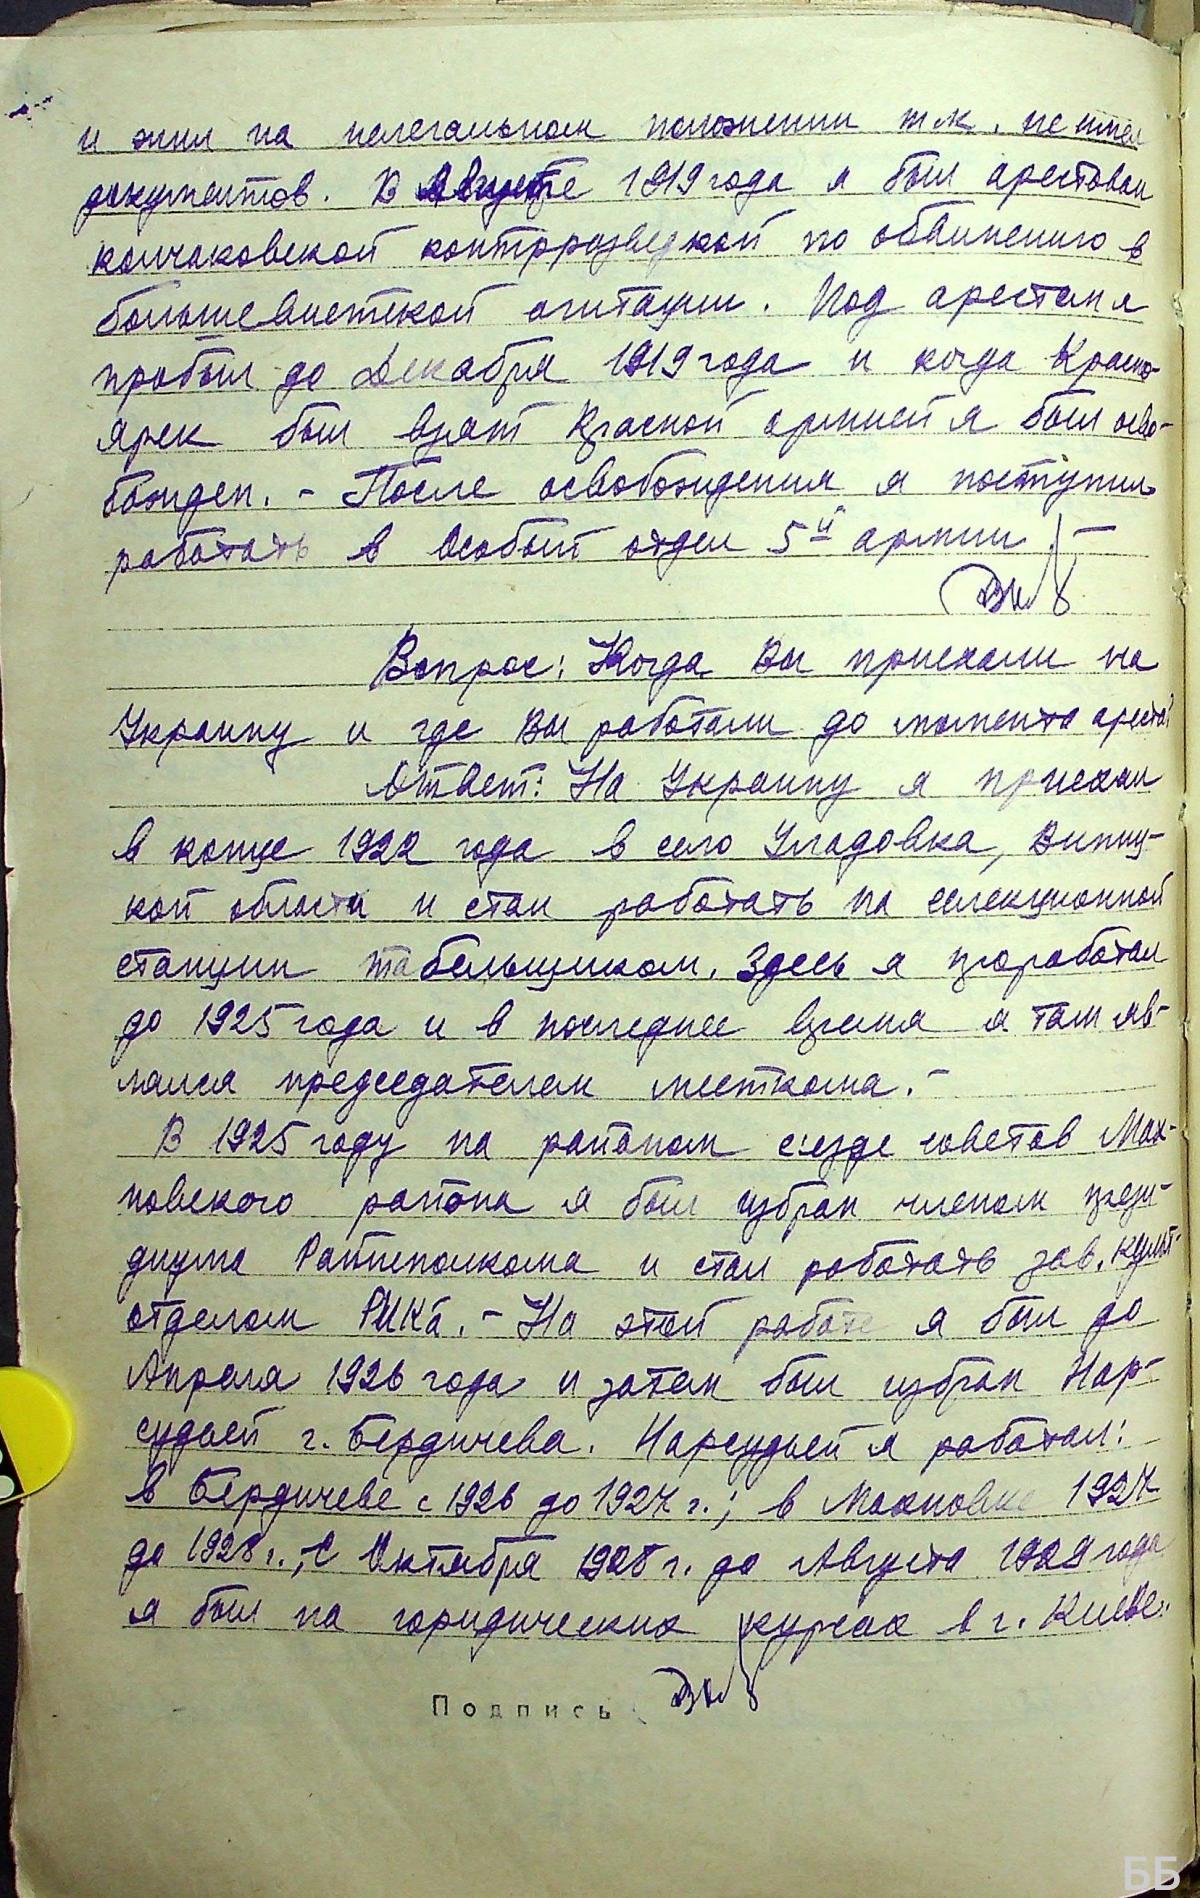 и жил на нелегальном положении т.к. не имел
документов. В Августе 1919 года я был арестован
колчаковской контрразведкой по обвинению в
большевистской агитации. Под арестом я
пробыл до Декабря 1919 года и когда Красно-
ярск был взят Красной армией я был осво-
божден. - После освобождения я поступил
работать в Особый отдел 5й армии -
Вопрос: Когда Вы приехали на
Украину и где Вы работали до момента ареста?
Ответ: На Украину я приехал
в конце 1922 года в село Уладовка, Винниц-
кой области и стал работать на селекционной
станции табельщиком. Здесь я проработал
до 1925 года и в последнее время я там яв-
лялся председателем месткома. -
В 1925 году на районом с'езде советов Мах-
новского района я был избран членом прези-
диума Райисполкома и стал работать зав. культ-
отделом РИКа. - На этой работе я был до
Апреля 1926 года и затем был избран Нар-
судьей г. Бердичева. Нарсудьей я работал:
в Бердичеве с 1926 до 1927 г.; в Махновке 1927
до 1928 г., С Октября 1928 г. до Августа 1929 года
я был на юридических курсах в г. Киеве.
Подпись
ББ